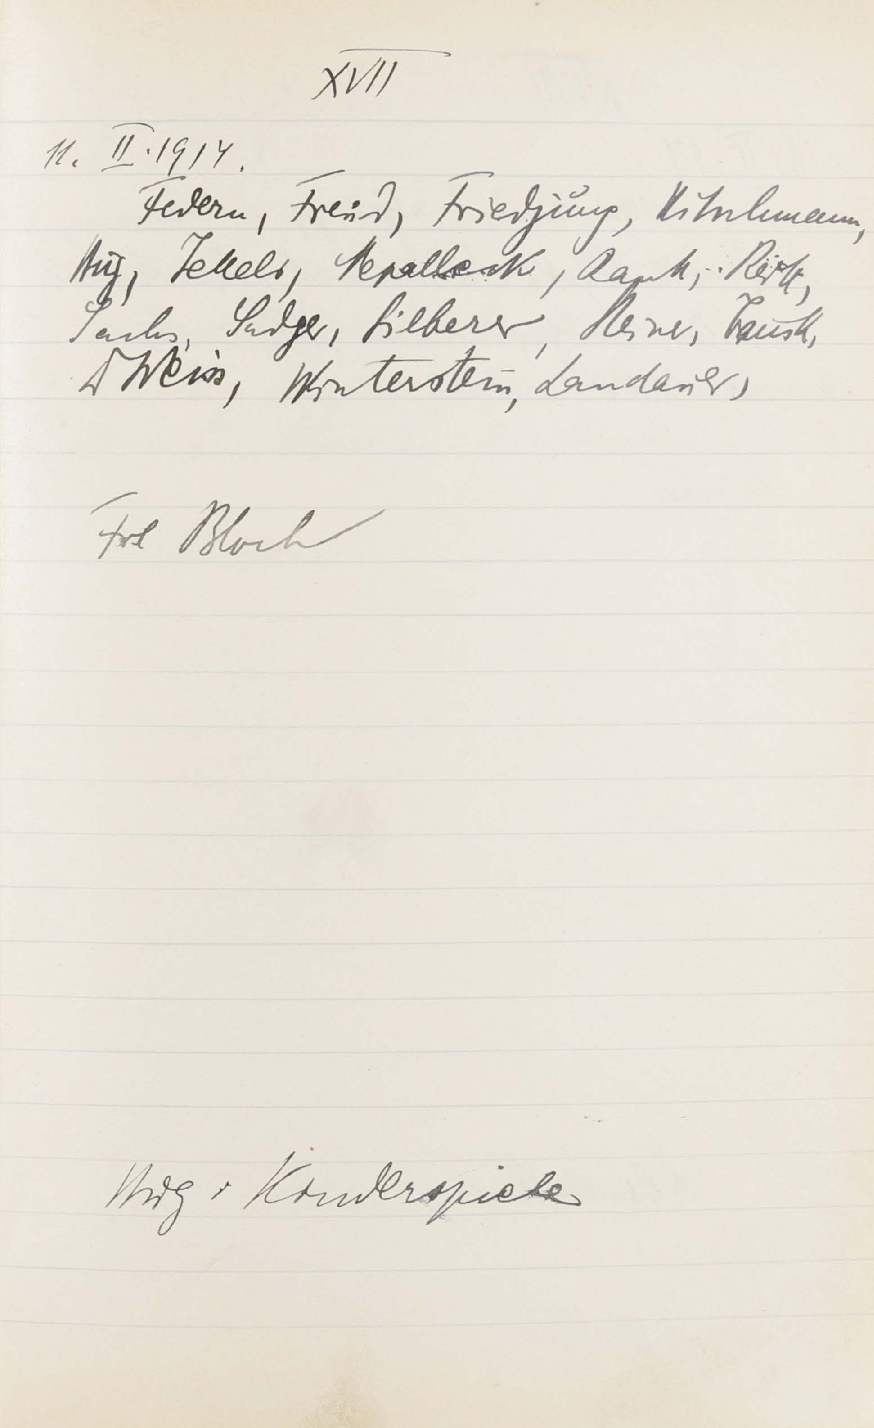 XVII
11. II. 1914.
Federn, Freud, Friedjung, Hitschmann,
Hug, Jekels, Nepalleck, Rank, Reik,
Sachs, Sadger, Silberer, Steiner, Tausk,
Weiss, Winterstein, Landauer,
Frl Bloch
Hug: Kinderspiele